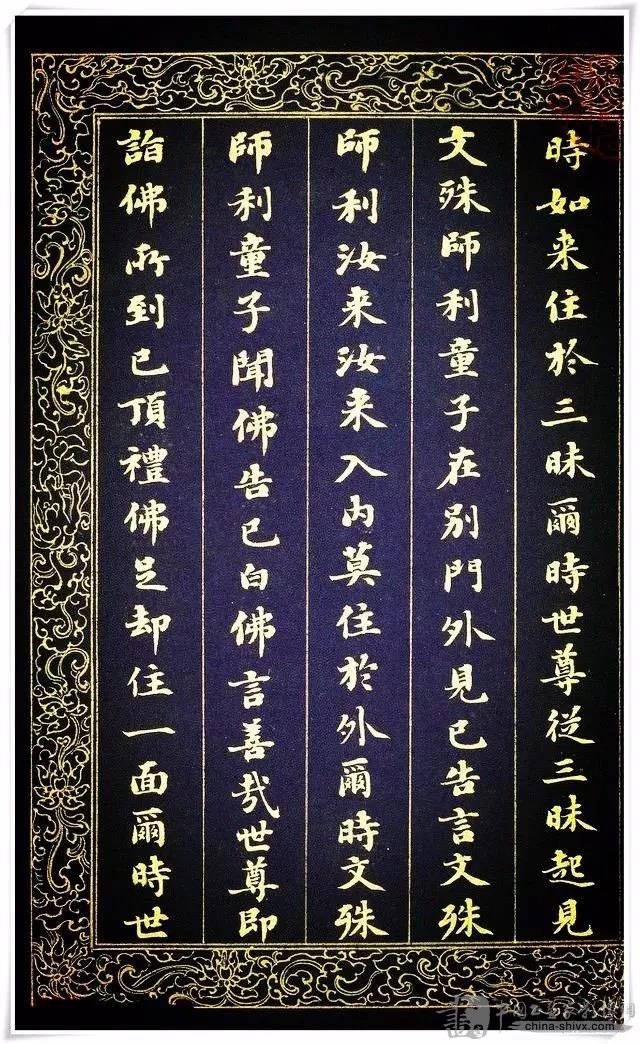 時如来住於三昧爾時世尊從三昧起見
文殊師利童子在別門外見已告言文殊
師利汝来汝来入内莫住於外爾時文殊
師利童子聞佛告已白佛言善哉世尊即
詣佛所到已頂禮佛足却住一面爾時世
china-shivx.com